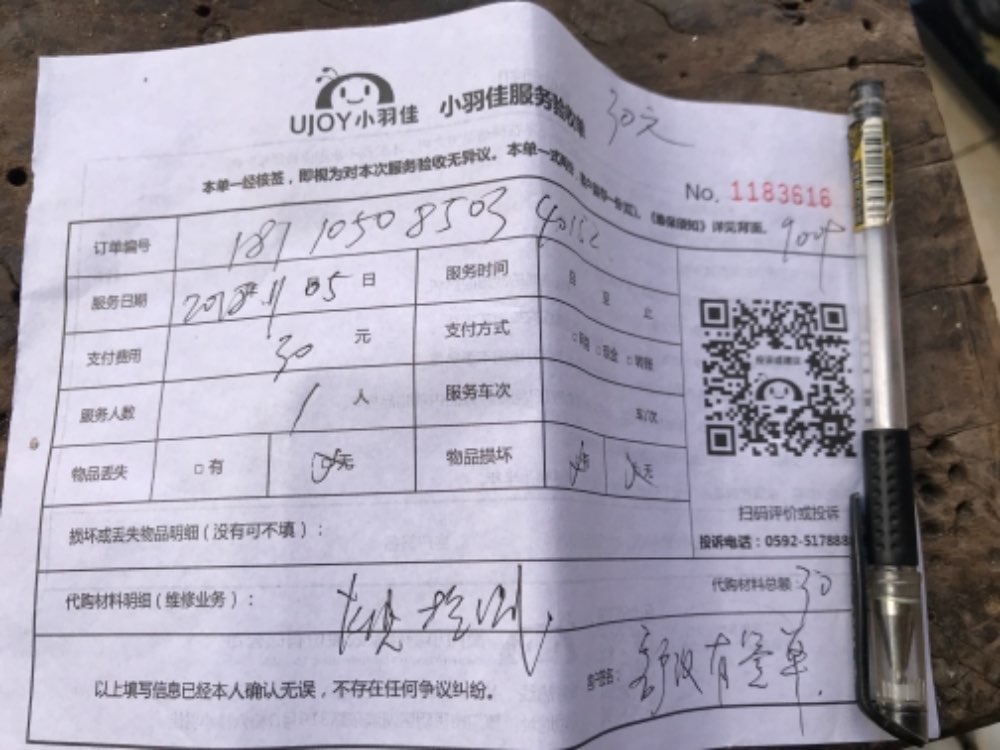 UJOY小羽佳 小羽佳服务验收单 30元
本单一经核签，即视为对本次服务验收无异议。本单一式两份，《售保须知》详见背面。
No. 1183616
订单编号 18711050 8503 40152
服务日期 2018年11月05日 服务时间 至 止
支付费用 30 元 支付方式 □现金 □转账
服务人数 1 人 服务车次 车/次
物品丢失 □有 无 物品损坏 有 无
损坏或丢失物品明细（没有可不填）：
扫码评价或投诉
投诉电话：0592-517888
代购材料明细（维修业务）： 检测 代购材料总额：30
以上填写信息已经本人确认无误，不存在任何争议纠纷。
客户签名： 客户没有签单